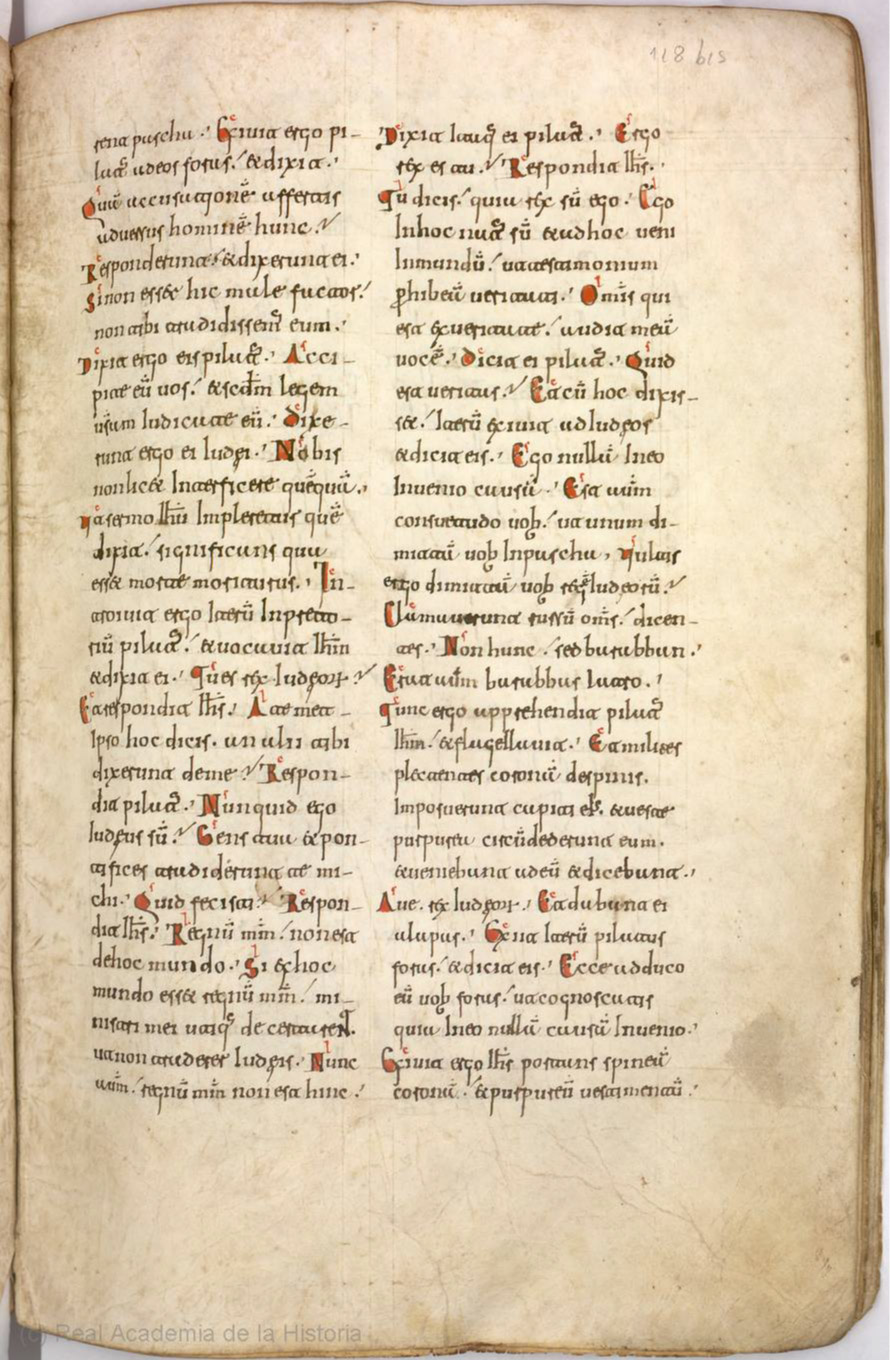 118 bis
rent pascha. Exivit ergo pi-
lat̄ ad eos foras. et dixit.
Quā accusationē affertis
adversus hominē hunc.
Responderunt et dixerunt ei.
Si non esset hic malefactor.
non tibi tradidissem̄ eum.
Dixit ergo eis pilat̄. Acci-
pite eū vos. et scdm̄ legem
vs̄am Iudicate eū. Dixe-
runt ergo ei Iudęi. Nobis
non licet Interficere quēquā.
Ut sermo ihū Impleretur quē
dixit. significans qua
esset morte moriturus. In-
troivit ergo Iterū In preto-
riū pilat̄. et vocavit ihm̄
et dixit ei. Tu es rex Iudęor̄
Et respondit ihs̄. A te met-
Ipso hoc dicis. an alii tibi
dixerunt de me. Respon-
dit pilat̄. Nunquid ego
Iudęus sū. Gens tua et pon-
tifices tradiderunt te mi-
chi. Quid fecisti. Respon-
dit ihs̄. Regnū mm̄ non est
de hoc mundo. Si ex hoc
mundo esset regnū mm̄. mi-
nistri mei utiq̄ decertarent.
ut non traderer Iudęis. Nunc
aūm. regnū mm̄ non est hinc.
Dixit itaq̄ ei pilat̄. Ergo
rex es tu. Respondit ihs̄.
Tu dicis. quia rex sū ego. Ego
In hoc nat̄ sū et ad hoc veni
In mundū. ut testimonium
p̄hibeā veritati. Omīs qui
est ex veritate. audit meā
vocē. Dicit ei pilat̄. Quid
est veritas. Et cū hoc dixis-
set. Iterū exivit ad Iudęos
et dicit eis. Ego nullā In eo
Invenio causā. Est aūm
consuetudo vob̄. ut unum di-
mittā vob̄ In pascha, Vultis
ergo dimittā vob̄ regē Iudęorū.
Clamaverunt rursū oms̄. dicen-
tes. Non hunc. sed barabban.
Erat aūtm barabbas latro.
Tunc ergo apprehendit pilat̄
ihm̄. et flagellavit. Et milites
plectentes coronā de spinis.
Imposuerunt capiti ei. et veste
purpurea circūdederunt eum.
et veniebant ad eū et dicebant.
Ave. rex Iudęor̄. Et dabant ei
alapas. Exiit Iterū pilatus
foras. et dicit eis. Ecce adduco
eū vob̄ foras. ut cognoscatis
quia In eo nullā causā Invenio.
Exivit ergo ihs̄ portans spineā
coronā. et purpureū vestimentū.
(c) Real Academia de la Historia